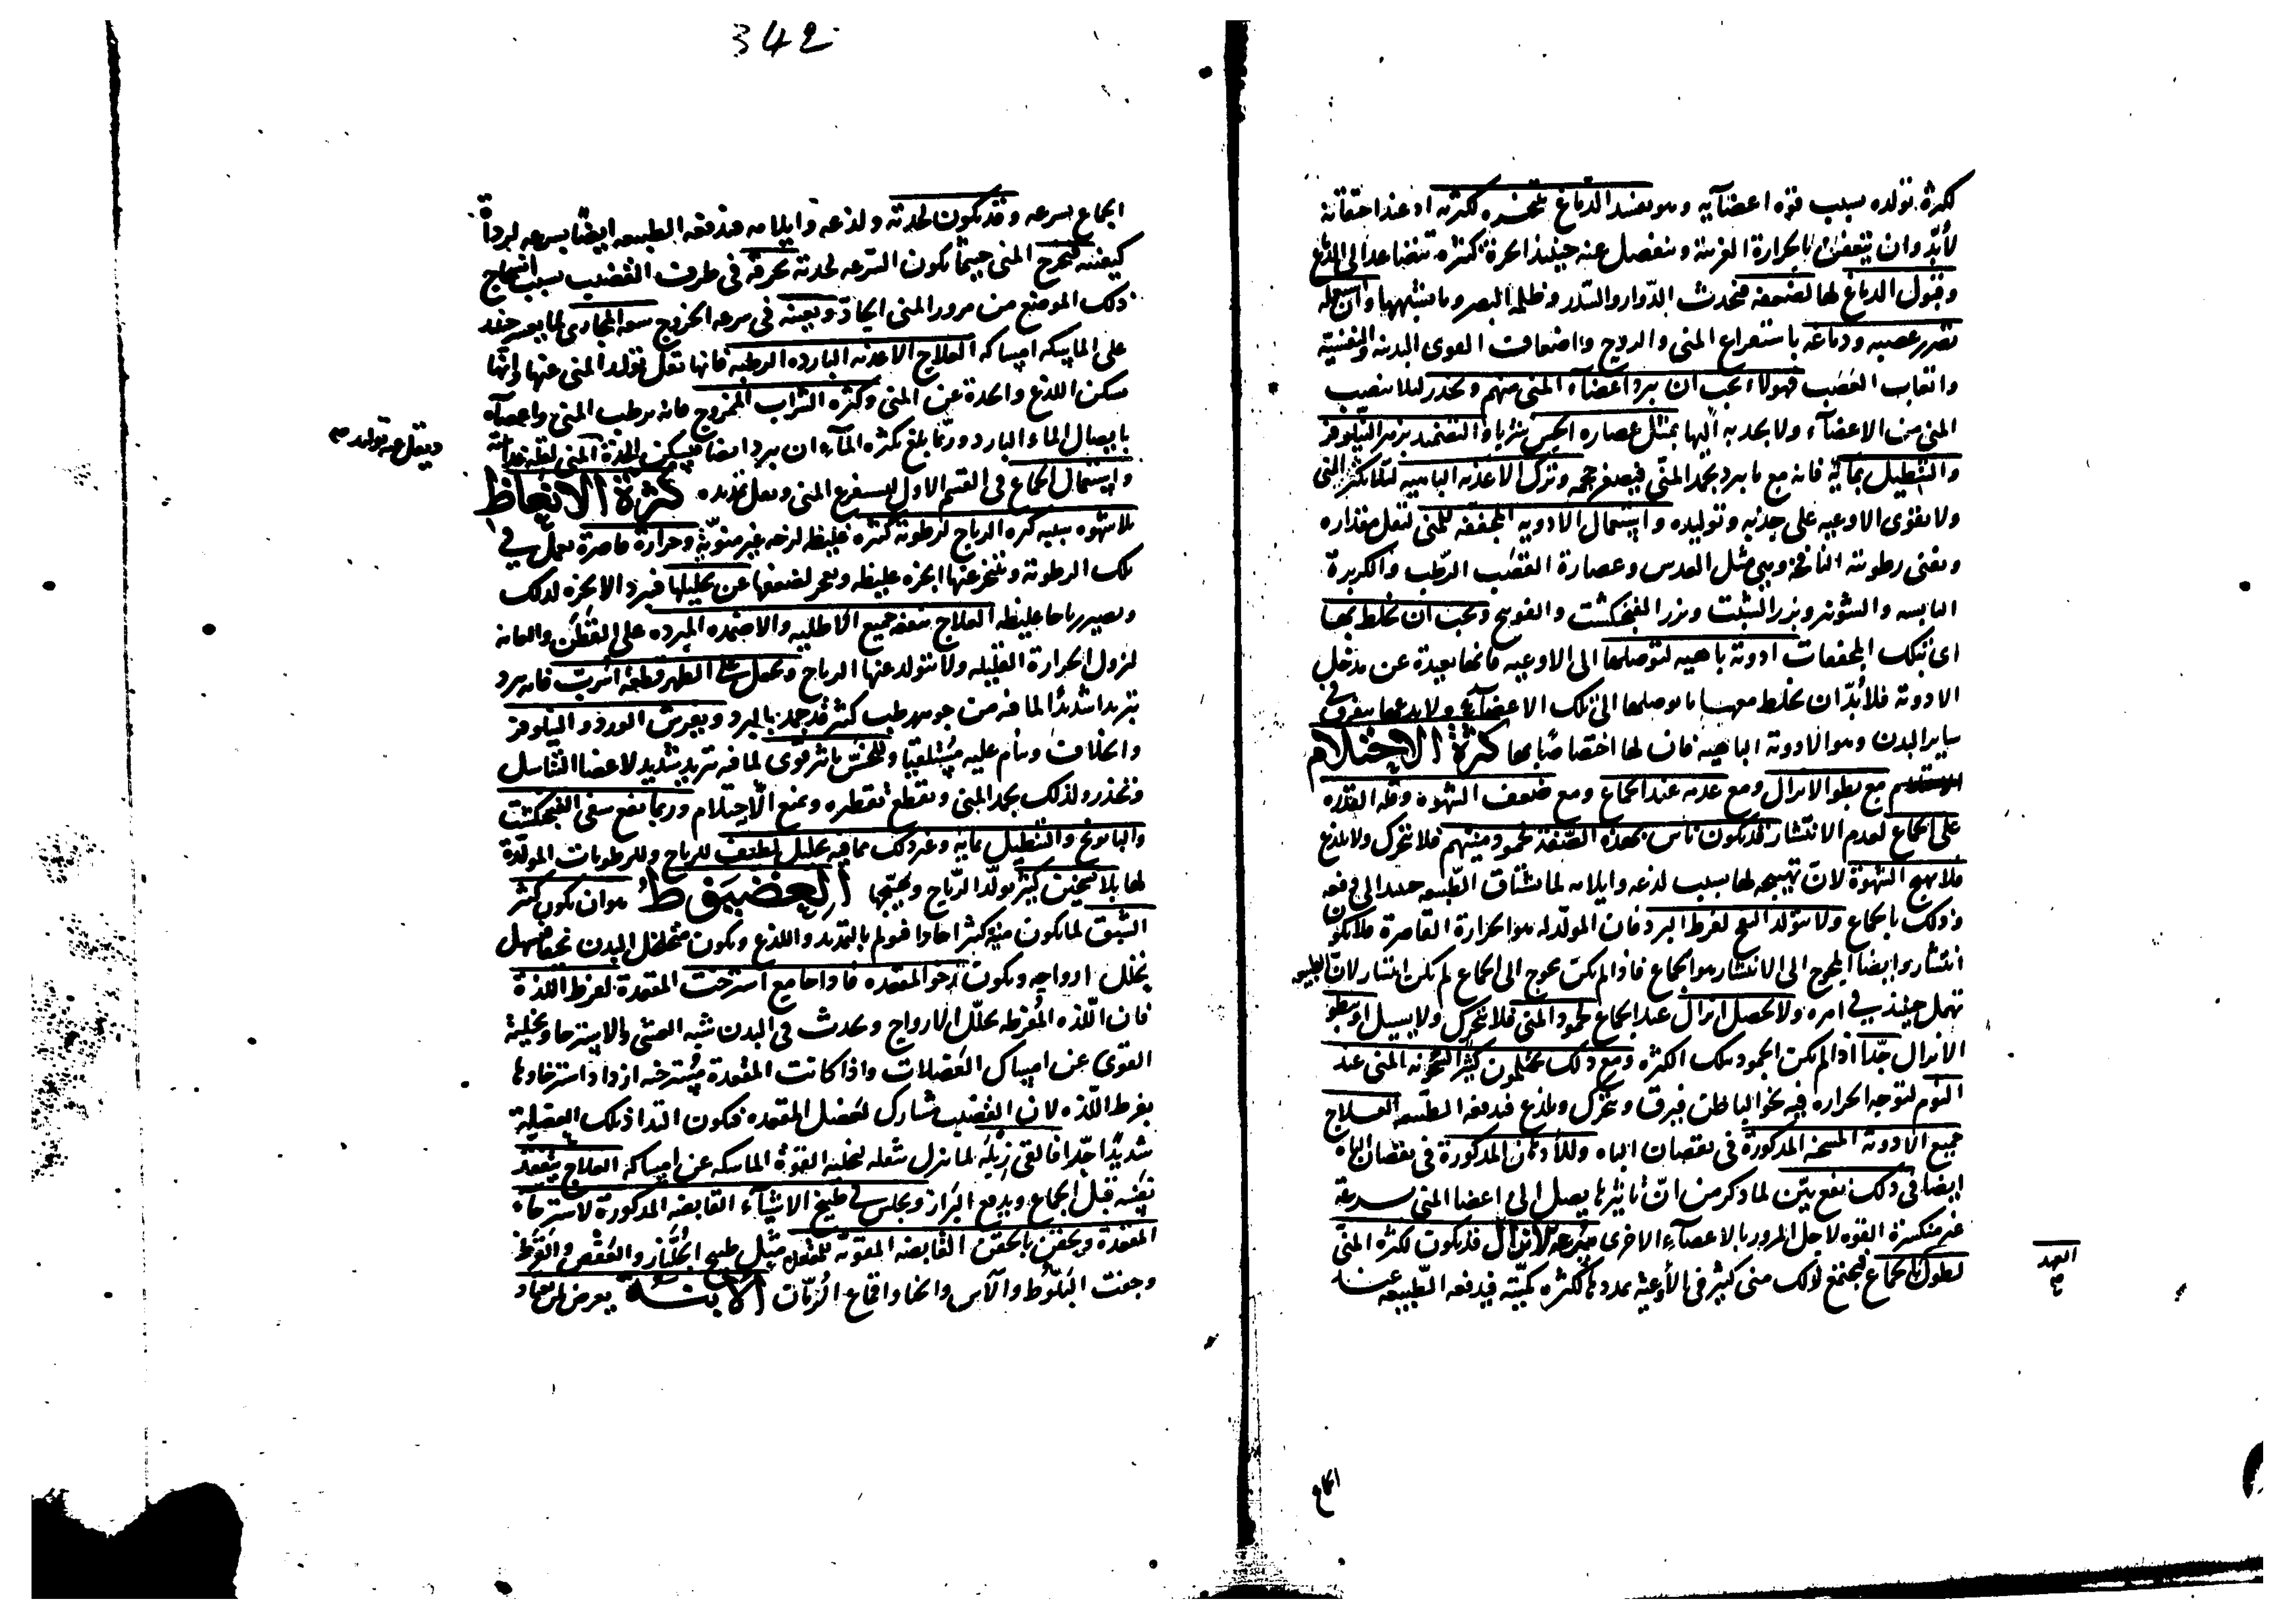 342
لكثرة تولده بسبب قوه اعضآيه وهو يفسد الدماغ بتبخيره لكثرته او عند احتقانه
لابدّ وان يتعفن بالحرارة الغريبة وينفصل عنه حينئذ ابخرة كثيرة تتصاعد الى الدماغ
وقبول الدماغ لها لضعفه فيحدث الدّوار والسّدر وظلمة البصر وما يشبهها وان استعمله
تضرر عصبه ودماغه باستفراغ المنى والروح واضعاف القوى البدنية والنفسية
واتعاب العَصَب فهولاء يجب ان يبرد اعضآء المنى منهم ويخدر ليلا ينصب
المنى من الاعضآء ولا يجذبه اليها بمثل عصاره الخس شربا والتضميد ببزر النيلوفر
والتنطيل بمائه فانه مع ما يبرد يجمد المنّى فيصغر حجمه وترك الاغذيه الباهيه لئلا يكثر المنى
ولا يقوى الاوعيه على جذبه وتوليده واستعمال الادويه المجففه للمنى لتقل مقداره
وتفنى رطوبته النافخة وهى مثل العدس وعصارة القصَب الرّطب والكزبرة
اليابسه والشونيز وبزر الشبت وبزر الفنجنكشت والفوتنج ويجب ان يخلط بها
اى بتلك المجففات ادوية باهيه لتوصلها الى الاوعيه فانها بعيدة عن مدخل
الادوية فلابُدّ ان يخلط معها ما يوصلها الى تلك الاعضآء ولا يدعها يتفرق فى
ساير البدن وهو الادوية الباهيه فان لها اختصاصًا بها كثرة الاحتلام
مع بطو الانزال ومع عدمه عند الجماع ومع ضعف الشهوة وقله القدره
على الجماع لعدم الانتشار قد يكون ناس بهذه الصّفة لجمود منيّهم فلا يتحرك ولا يلذع
فلا يهيج الشهوة لانّ تهييجه لها بسبب لذعه وايلامه لما يشتاق الطّبيعه حينئذ الى دفعه
وذلك بالجماع ولا يتولد النفخ لفرط البرد فان المولّد له هو الحرارة القاصرة فلا يكون
انتشار وايضا المحوج الى الانتشار هو الجماع فاذا لم يكن محوج الى الجماع لم يكن انتشار لانّ الطبيعه
تهمل حينئذ فى امره ولا يحصل انزال عند الجماع لجمود المنى فلا يتحرك ولا يسيل او يبطو
الانزال جّدا اذا لم يكن الجمود بتلك الكثرة ومع ذلك يحتلمون كثيرًا لسخونه المنى عند
النوم لتوجه الحراره فيه نحو الباطن فيرق ويتحرك ويلذع فيدفعه الطبيعه العلاج
جميع الادوية المسخنه المذكورة فى نقصان الباه وللادهان المذكورة فى نقصان الباه
ايضا فى ذلك نفع بيّن لما ذكر من انّ تاثيرها يصل الى اعضا المنى سرعة
غير منكسرة القوه لاجل المرور بالاعضآء الاخرى سرعة الانزال قد يكون لكثره المنى
لطول العهد بالجماع فيجتمع لذلك منى كثير فى الأوعية يمددها لكثره كميّته فيدفعه الطّبيعه عند
العهد
الجماع
الجماع بسرعه وقد يكون لحدته ولذعه وايلامه فتدفعه الطبيعه ايضا بسرعه لرداة
كيفيته فيخرج المنى حيثما يكون السّرعه لحدته بحرقه فى طرف القضيب بسبب انسحاج
ذلك الموضع من مرور المنى الحادّ ويعينه فى سرعه الخروج سعه المجارى لما يعسر حينئذ
على الماسكه امساكه العلاج الاغذيه البارده الرطبه فانها تقل تولد المنى عنها وانها
تسكن اللذع والحدة عن المنى وكثره الشراب الممزوج فانه يرطب المنى واعضآه
بايصال الماء البارد وربّما بلغ بكثره المآء ان يبرد ايضا فيسكن الحدة المنى لقله غذائه
ويقل عنه تولده
واستعمال الجماع فى القسم الاول ليستفرغ المنى ويقل تمديده كثرة الانعاظ
بلا شهوه سببه كثره الرياح لرطوبة كثيره غليظه لزجه غير منويّة وحرارة قاصرة تعمل فى
تلك الرطوبة ويتبخر عنها ابخره غليظه ويعجز لضعفها عن تحليلها فيبرد الابخره لذلك
ويصير رياحا غليظه العلاج ينفعه جميع الاطليه والاضمده المبرده على القطَن والعانه
لتزول الحرارة القليله ولا يتولد عنها الرياح ويحمل على الظهر قطعة اسرب فانه يبرد
تبريدا شديدا لما فيه من جوهر رطب كثير قد جمد بالبرد ويفرش الورد والنيلوفر
والخلاف وينام عليه مستلقيا وللخسّ تاثير قوى لما فيه تبريد شديد لاعضا التناسل
وتخدير ولذلك يجمد المنى ويقطع تقطره ويمنع الاحتلام وربما نفع سفى الفنجنكشت
والبابونج والتنطيل بمائه وغير ذلك مما فيه تحليل لطيف للرياح وللرطوبات المولّدة
لها بلا تسخين كثير يولّد الرّياح ويهيّجها العِضيَوط هو ان يكون كثير
الشبق لما يكون منيه كثيرا حادا فيولم بالتمديد واللذع ويكون متخلخل البدن نحيفا سهل
تحلل ارواحه ويكون رخو المقعده فاذا جامع استرخت المقعدة لفرط اللذة
فان اللّذه المُفرطه تحلّل الارواح ويحدث فى البدن شبه الغشى والاسترخا وتخلية
القوى عن امساك العَضلات واذا كانت المقعدة مُسترخيه ازداد استرخاوها
بفرط اللّذه لان القضيب مشارك لعَضل المقعده فيكون التذاذ تلك العضلة
شديدًا جّدا فالقى زبله لما نزل شغله لتخلية القوة الماسكه عن امساكه العلاج يتفقد
نفسه قبل الجماع ويدفع البَراز ويجلس فى طبيخ الاشيآء القابضه المذكورة لاسترخآء
المقعدة ويحقن بالحقن القابضه المقويّة للعضل مثل طبيخ الجُلّنار والعَفْص والقرظ
وجفت البَلّوط والآس والحنا واقماع الرّمّان الابنة يعرض لمن اعتاد